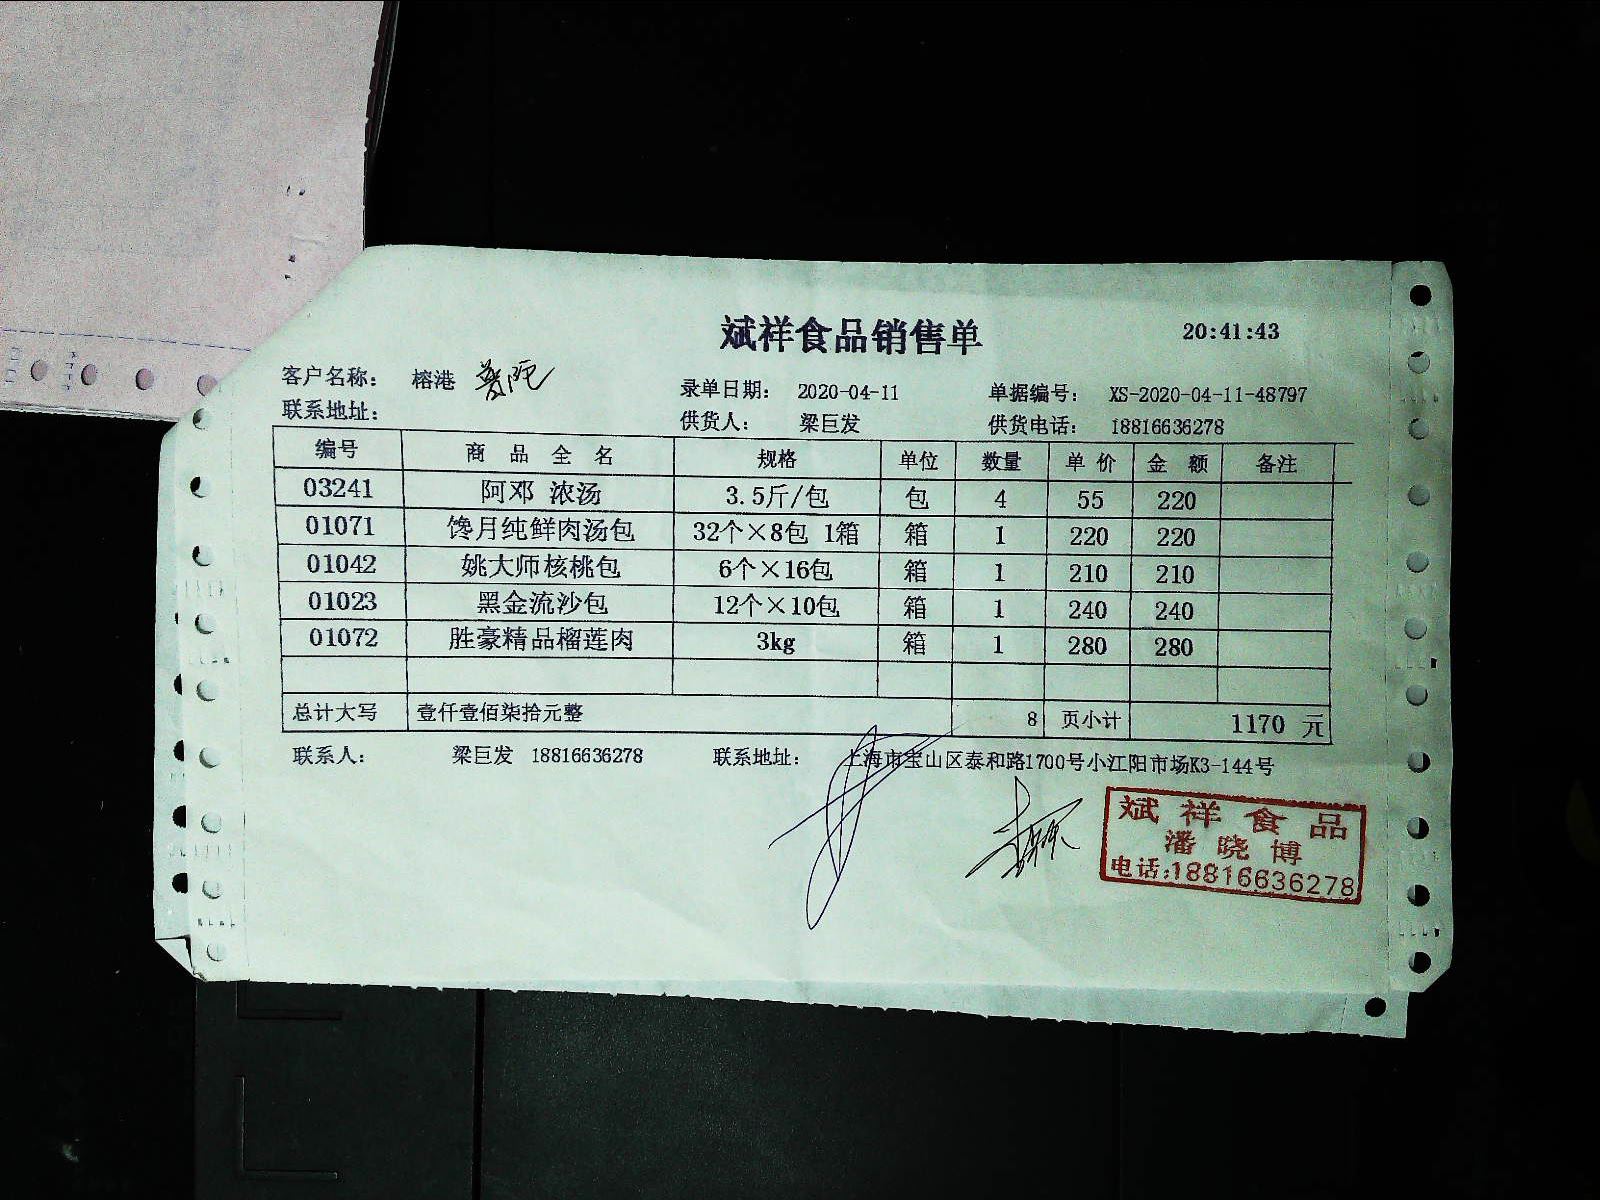 斌祥食品销售单 20:41:43
客户名称： 榕港 录单日期： 2020-04-11 单据编号： XS-2020-04-11-48797
联系地址： 供货人： 梁巨发 供货电话： 18816636278
编号 商品全名 规格 单位 数量 单价 金额 备注
03241 阿邓 浓汤 3.5斤/包 包 4 55 220
01071 馋月纯鲜肉汤包 32个×8包 1箱 箱 1 220 220
01042 姚大师核桃包 6个×16包 箱 1 210 210
01023 黑金流沙包 12个×10包 箱 1 240 240
01072 胜豪精品榴莲肉 3kg 箱 1 280 280
总计大写 壹仟壹佰柒拾元整 8 页小计 1170 元
联系人： 梁巨发 18816636278 联系地址： 上海市宝山区泰和路1700号小江阳市场K3-144号
斌祥食品
潘晓博
电话:18816636278